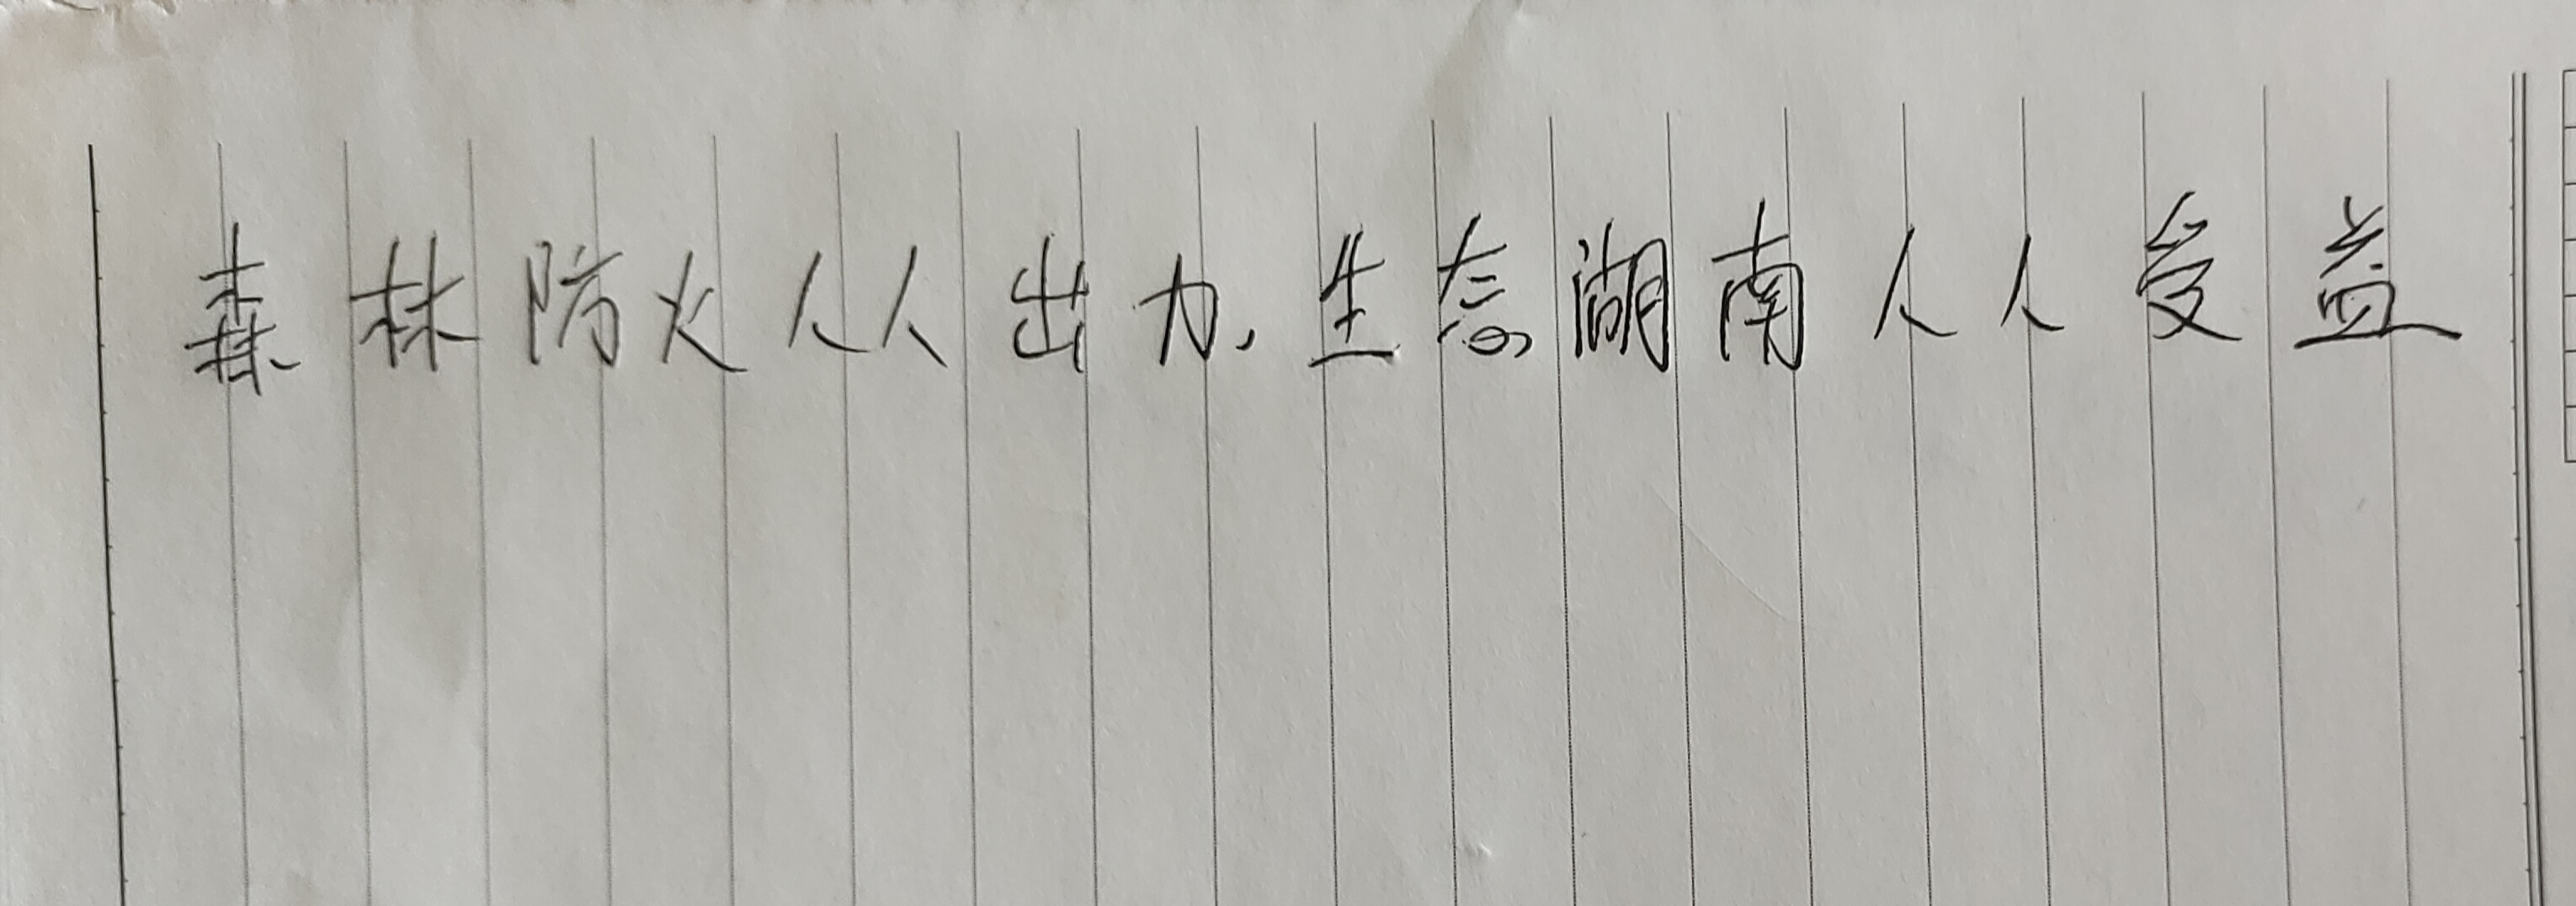 森林防火人人出力,生态湖南人人受益